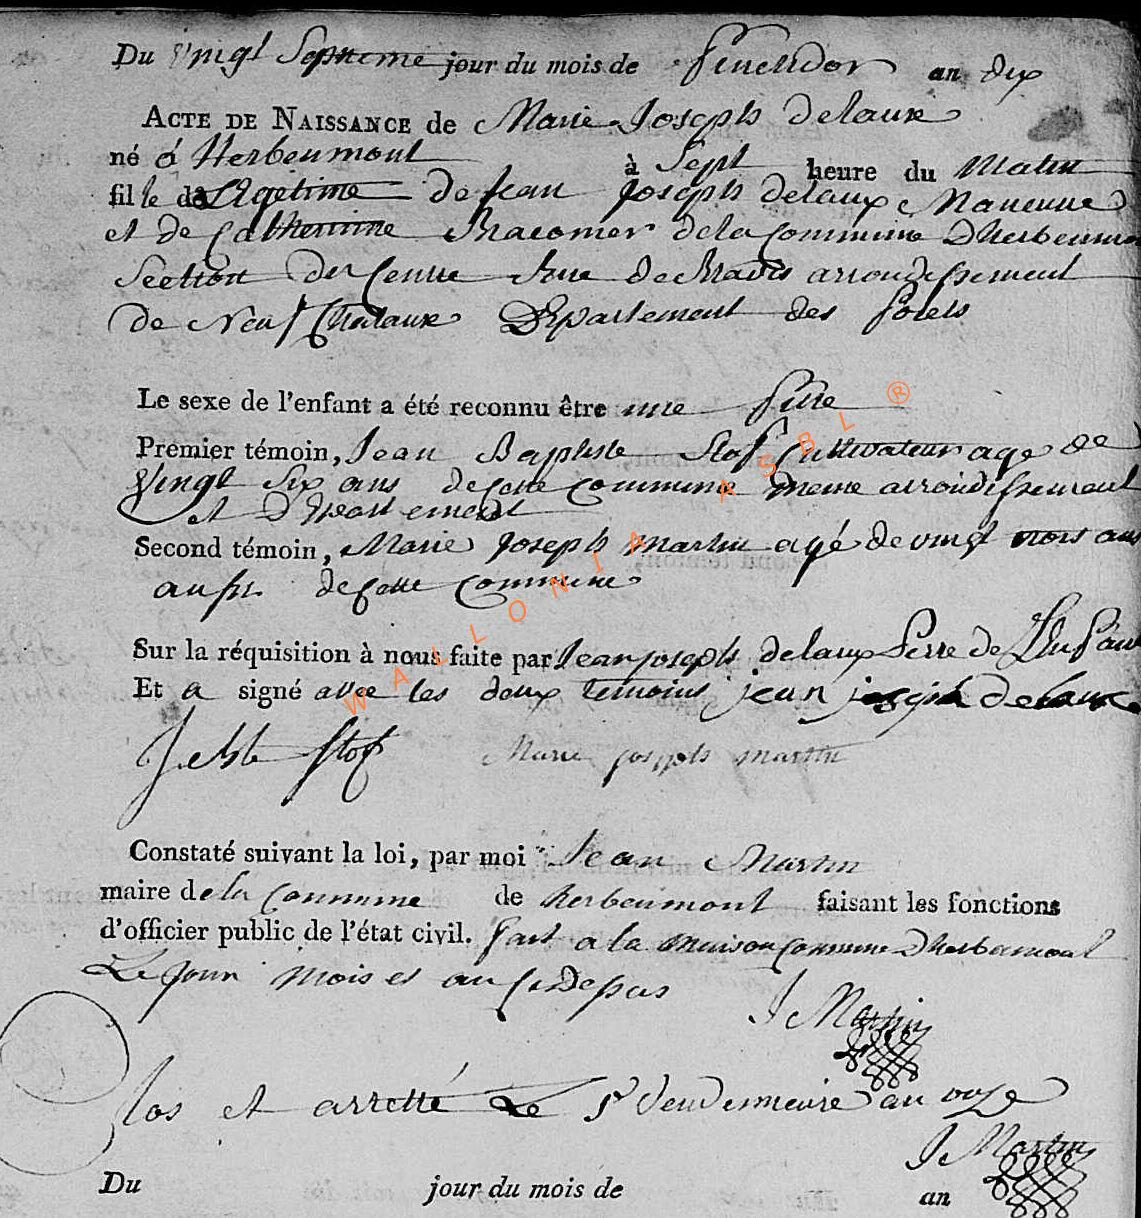 Du vingt Septieme jour du mois de fructidor an dix
ACTE DE NAISSANCE de Marie Joseph delaux
né à Herbeumont à Sept heure du Matin
fille de Legetime de jean joseph delaux Maneuvre
et de Catherinne de la Commune D'herbeumont
Section du Centre arrondissement
de Neuf Chataux Departement des forets
Le sexe de l'enfant a été reconnu être une fille
Premier témoin, Jean Baptiste Stof Cultivateur age de
Vingt Six ans de cette commune meme arrondissement
et Departement
Second témoin, Marie joseph martin agé de vingt trois ans
aussi de cette Commune
Sur la réquisition à nous faite par Jean joseph delaux Perre de L'enfant
Et a signé avec les deux temoins jean joseph Delaux
J Bte Stof Marie joseph martin
Constaté suivant la loi, par moi Jean Martin
maire de la Commune de herbeumont faisant les fonctions
d'officier public de l'état civil. fait a la maison Commune D'herbeumont
Le jour mois et an Cy Dessus
J Martin
Clos et arretté Le 1r Vendemiaire an onze
J Martin
Du jour du mois de an
WALLONIA ASBL ®